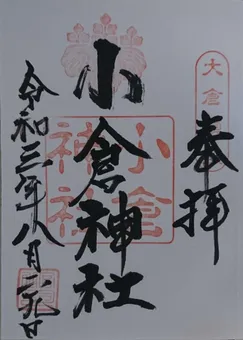 奉拝
大倉
小倉神社
小倉
神社
令和三年八月二九日